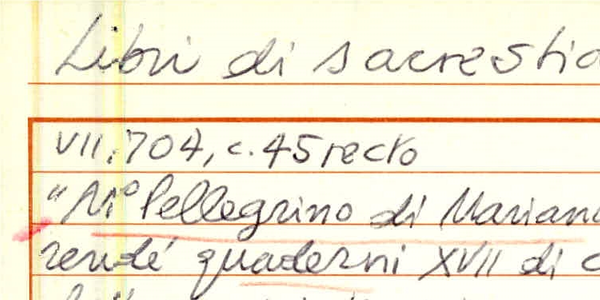 Libri di sacrestia
VII, 704, c. 45 recto
"M° Pellegrino di Mariano
rendé quaderni XVII di c